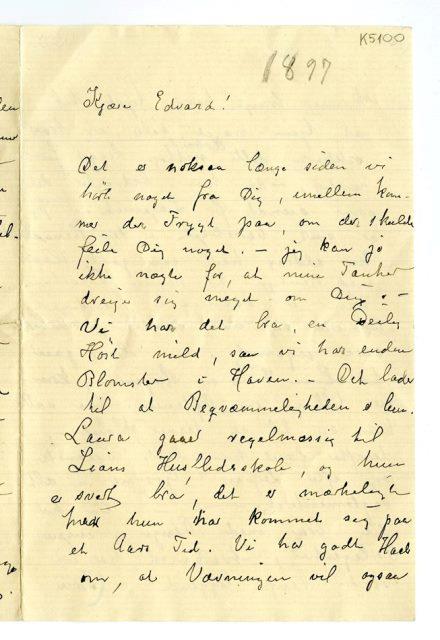 K5100
1897
Kjære Edvard!
Det er noksaa længe siden vi
hørt noget fra Dig, imellem kom-
mer der Frygt paa, om der skulde
feile Dig noget. – jeg kan jo
ikke negte for, at mine Tanker
dreier sig meget om Dig. –
Vi har det bra, en Deilig
Høst mild, saa vi har endnu
Blomster i Haven. – Det lader
til at Beqvæmmeligheden er
Laura gaaer regelmæssig til
Lians Husflidsskole, og hun
er svert bra, det er mærkeligt
hun har kommet sig paa
et Aars Tid. Vi har godt Haab
om, at Vævningen vil ogsaa